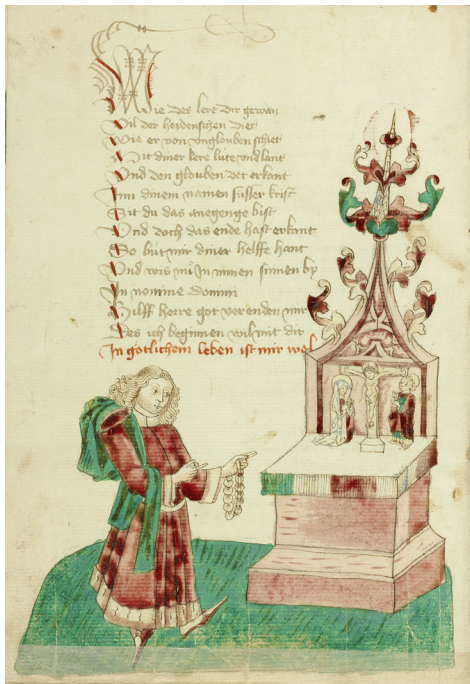 Wie des lere dir gewan
Vil der heydenschen diet
Wie er von vnglouben schiet
Mit diner lere lúte vnd lant
Vnd den glouben der erkant
Inn dinem namen süsser krist
Sit du das anegenge bist
Vnd doch das ende hast erkant
So bút mir diner helffe hant
Vnd wis mir In minen sinnen by
In nomine domini
Hilff herre got verenden mir
Des ich beginnen wil mit dir
In gotlichem leben ist mir wol